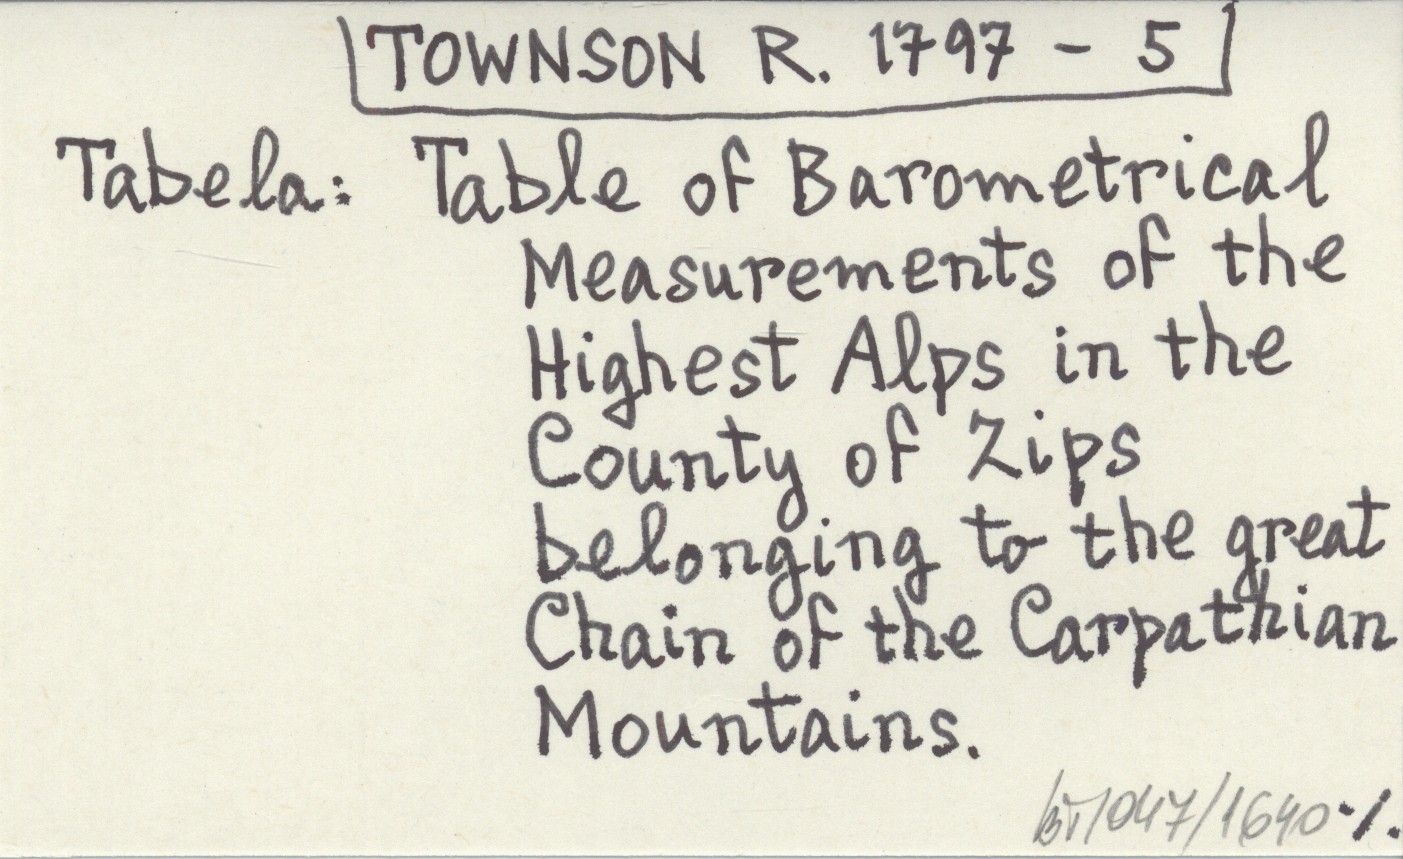 TOWNSON R. 1797 - 5
Tabela: Table of Barometrical
Measurements of the
Highest Alps in the
County of Zips
belonging to the great
Chain of the Carpathian
Mountains.
/047/1640 ·/.